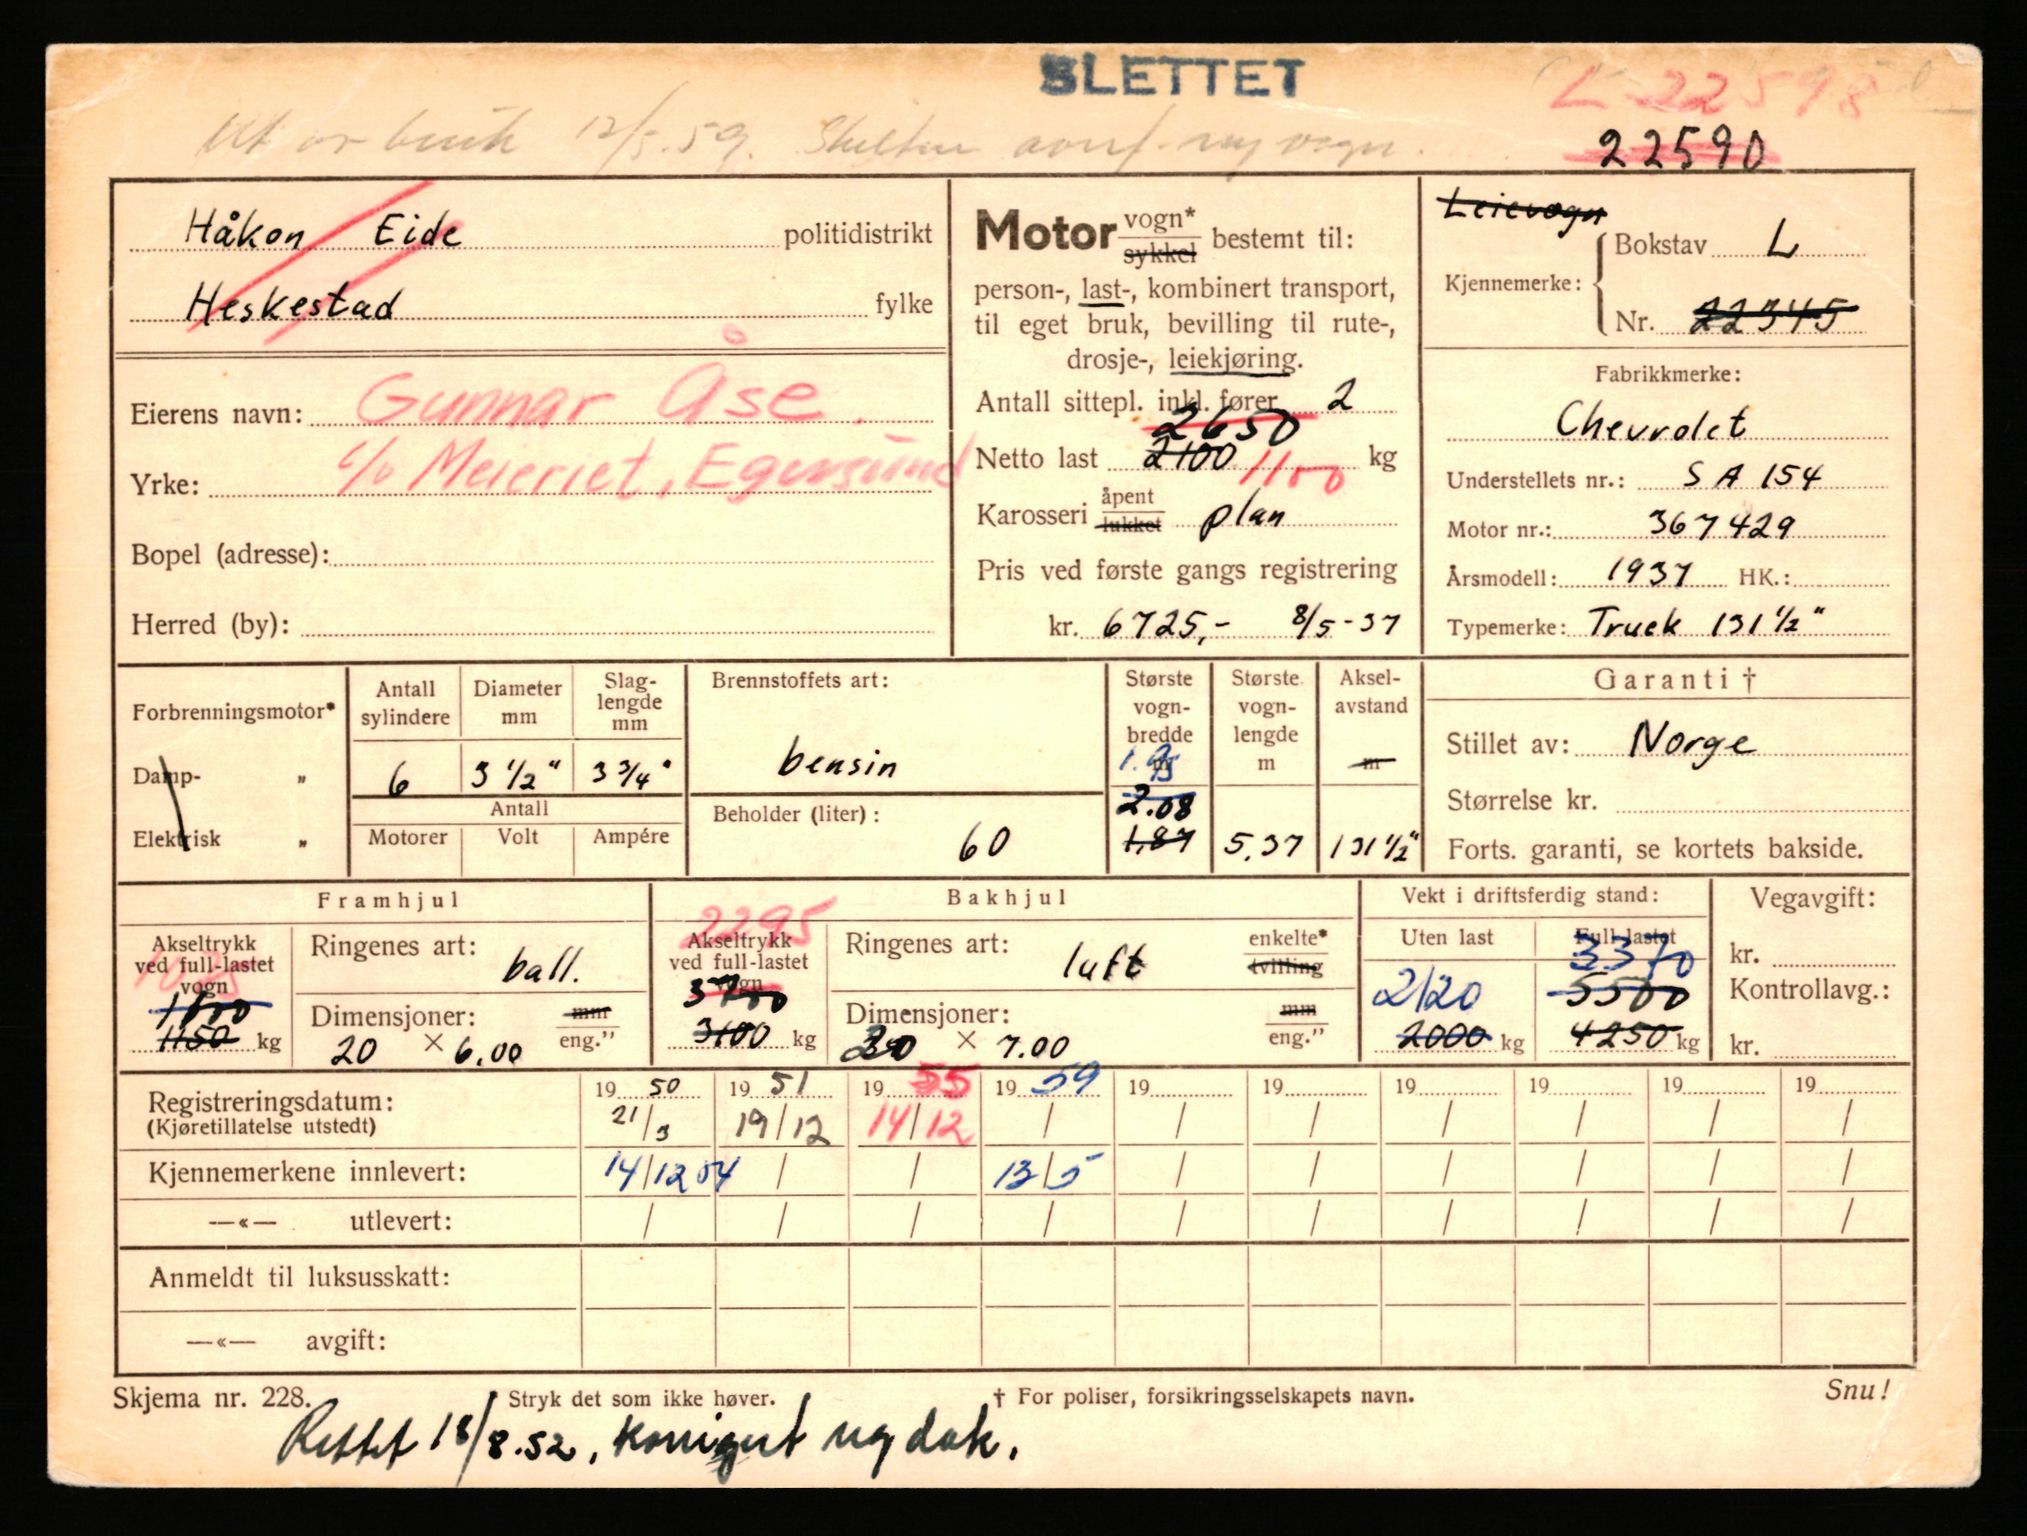 SLETTET
L-22598
Ut av bruk 12/5.59. Skilter ny vogn.
22590
Håkon Eide politidistrikt
Heskestad fylke
Eierens navn: Gunnar Åse.
Yrke: c/o Meieriet, Egersund
Bopel (adresse):
Herred (by):
Motor vogn* sykkel bestemt til:
person-, last-, kombinert transport,
til eget bruk, bevilling til rute-,
drosje-, leiekjøring.
Antall sittepl. inkl. fører 2
2650
Netto last 2100 1100 kg
Karosseri åpent lukket plan
Pris ved første gangs registrering
kr. 6725,- 8/5-37
Leievogn
Kjennemerke: Bokstav L
Nr. 22345
Fabrikkmerke:
Chevrolet
Understellets nr.: SA 154
Motor nr.: 367429
Årsmodell: 1937 HK.:
Typemerke: Truck 131 1/2"
Forbrenningsmotor*
Damp- „
Elektrisk „
Antall sylindere
Diameter mm
Slag-lengde mm
6 3 1/2" 3 3/4"
Antall
Motorer Volt Ampére
Brennstoffets art:
bensin
Beholder (liter):
60
Største vogn-bredde m
1.95
2.08
1.87
Største vogn-lengde m
5.37
Aksel-avstand m
131 1/2"
Garanti †
Stillet av: Norge
Størrelse kr.
Forts. garanti, se kortets bakside.
Framhjul
Akseltrykk ved full-lastet vogn
1600
1150 kg
Ringenes art: ball.
Dimensjoner: mm
20 × 6.00 eng."
Bakhjul
2295
Akseltrykk ved full-lastet vogn
3700
3100 kg
Ringenes art: luft enkelte* tvilling
Dimensjoner: mm
20 × 7.00 eng."
Vekt i driftsferdig stand:
Uten last Full-lastet
2120 3370
5500
2000 kg 4250 kg
Vegavgift:
kr.
Kontrollavg.:
kr.
Registreringsdatum: 19 50 19 51 19 55 19 59 19 19 19 19 19 19
(Kjøretillatelse utstedt) 21/3 19/12 14/12 / / / / / / /
Kjennemerkene innlevert: 14/12 54 / / 13/5 / / / / / /
—«— utlevert: / / / / / / / / / /
Anmeldt til luksusskatt:
—«— avgift:
Skjema nr. 228. Stryk det som ikke høver. † For poliser, forsikringsselskapets navn. Snu!
Rettet 18/8.52, korrigert vogdok.